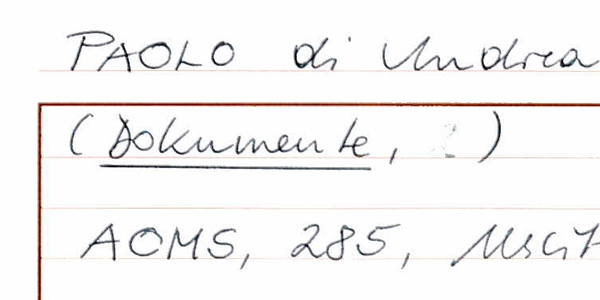 PAOLO di Andrea
(Dokumente, ?)
AOMS, 285,